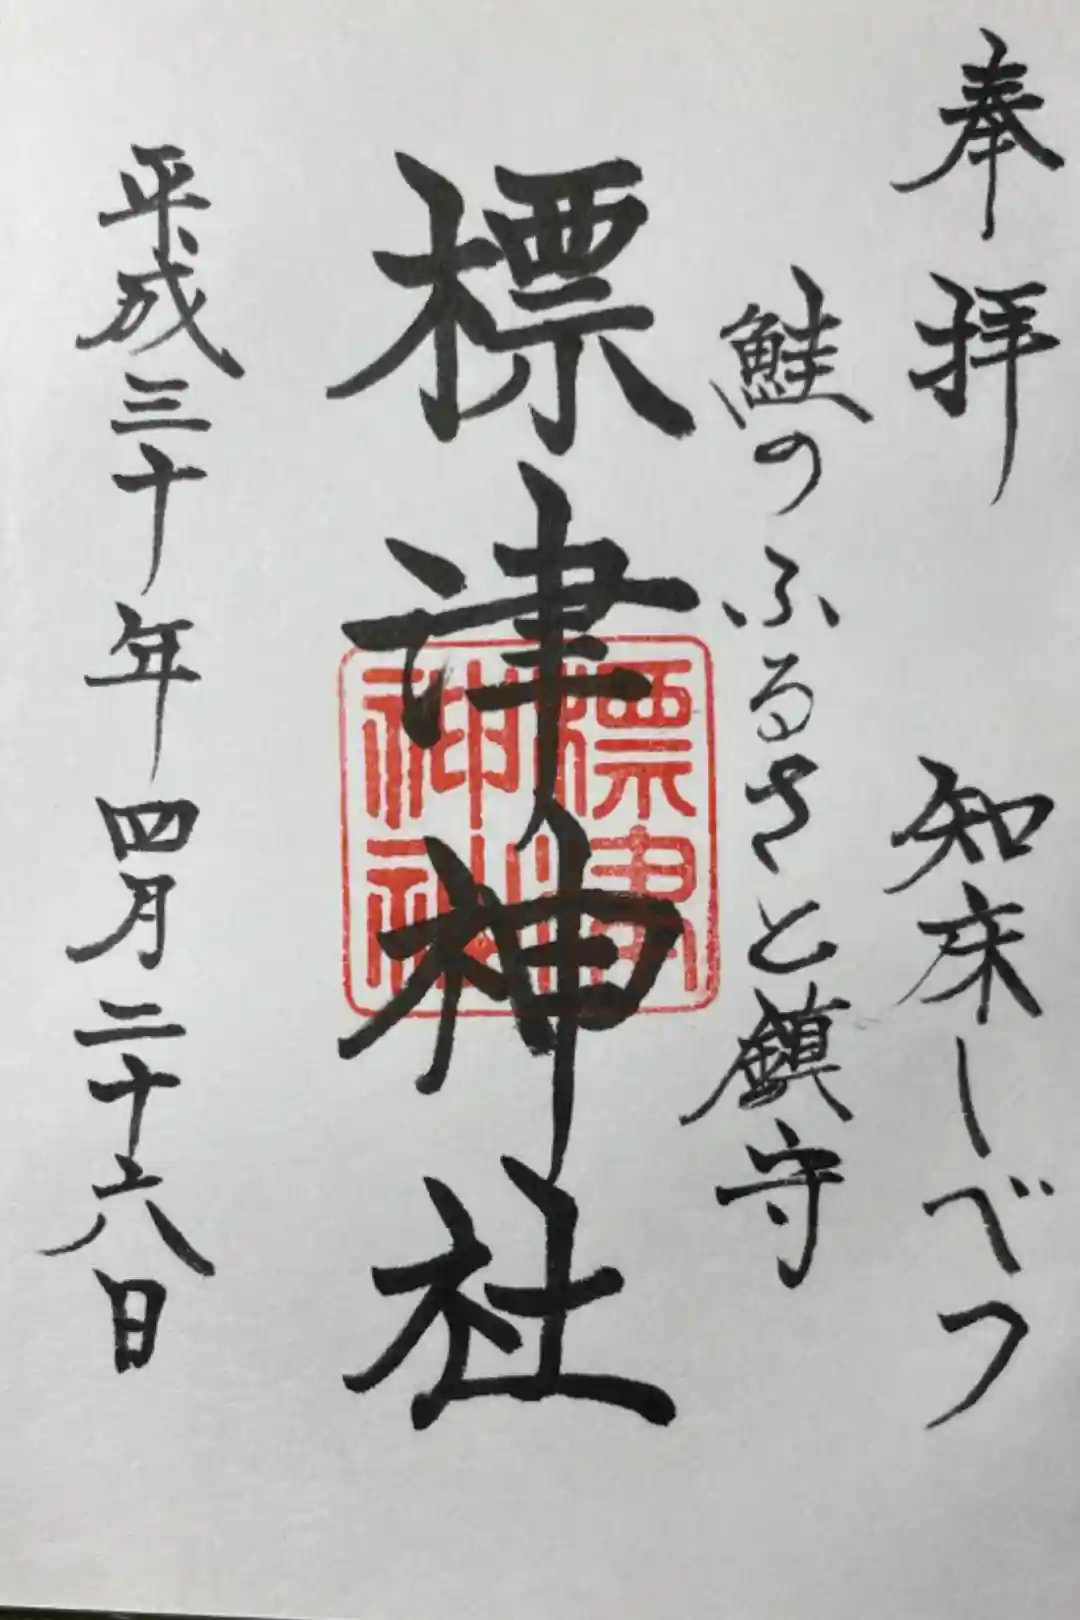 奉拝 知床しべつ
鮭のふるさと鎮守
標津神社
標津
神社
平成三十年四月二十六日